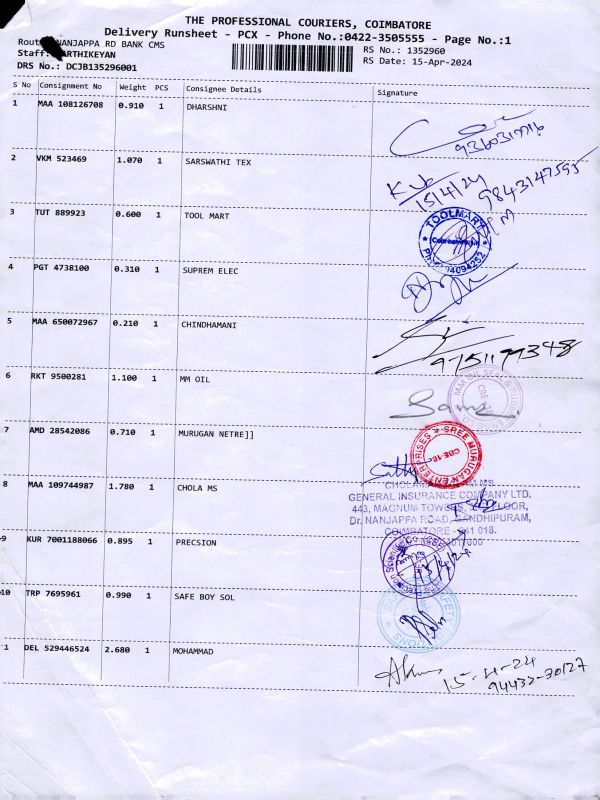 THE PROFESSIONAL COURIERS, COIMBATORE
Delivery Runsheet - PCX - Phone No.:0422-3505555 - Page No.:1
NANJAPPA RD BANK CMS
Staff: ARTHIKEYAN
DRS No.: DCJB135296001
RS No.: 1352960
RS Date: 15-Apr-2024
S No Consignment No Weight PCS Consignee Details Signature
1 MAA 108126708 0.910 1 DHARSHNI
2 VKM 523469 1.070 1 SARSWATHI TEX
15/4/24 9843147595
3 TUT 889923 0.600 1 TOOL MART
TOOLMART
4 PGT 4738100 0.310 1 SUPREM ELEC
5 MAA 650072967 0.210 1 CHINDHAMANI
6 RKT 9500281 1.100 1 MM OIL
7 AMD 28542086 0.710 1 MURUGAN NETRE]]
SREE MURUGAN ENTERPRISES
8 MAA 109744987 1.780 1 CHOLA MS
GENERAL INSURANCE COMPANY LTD.
443, MAGNUM TOWERS, FLOOR,
Dr. NANJAPPA ROAD, GANDHIPURAM,
COIMBATORE - 641 018.
9 KUR 7001188066 0.895 1 PRECSION
10 TRP 7695961 0.990 1 SAFE BOY SOL
1 DEL 529446524 2.680 1 MOHAMMAD
15-4-24
94432-30127